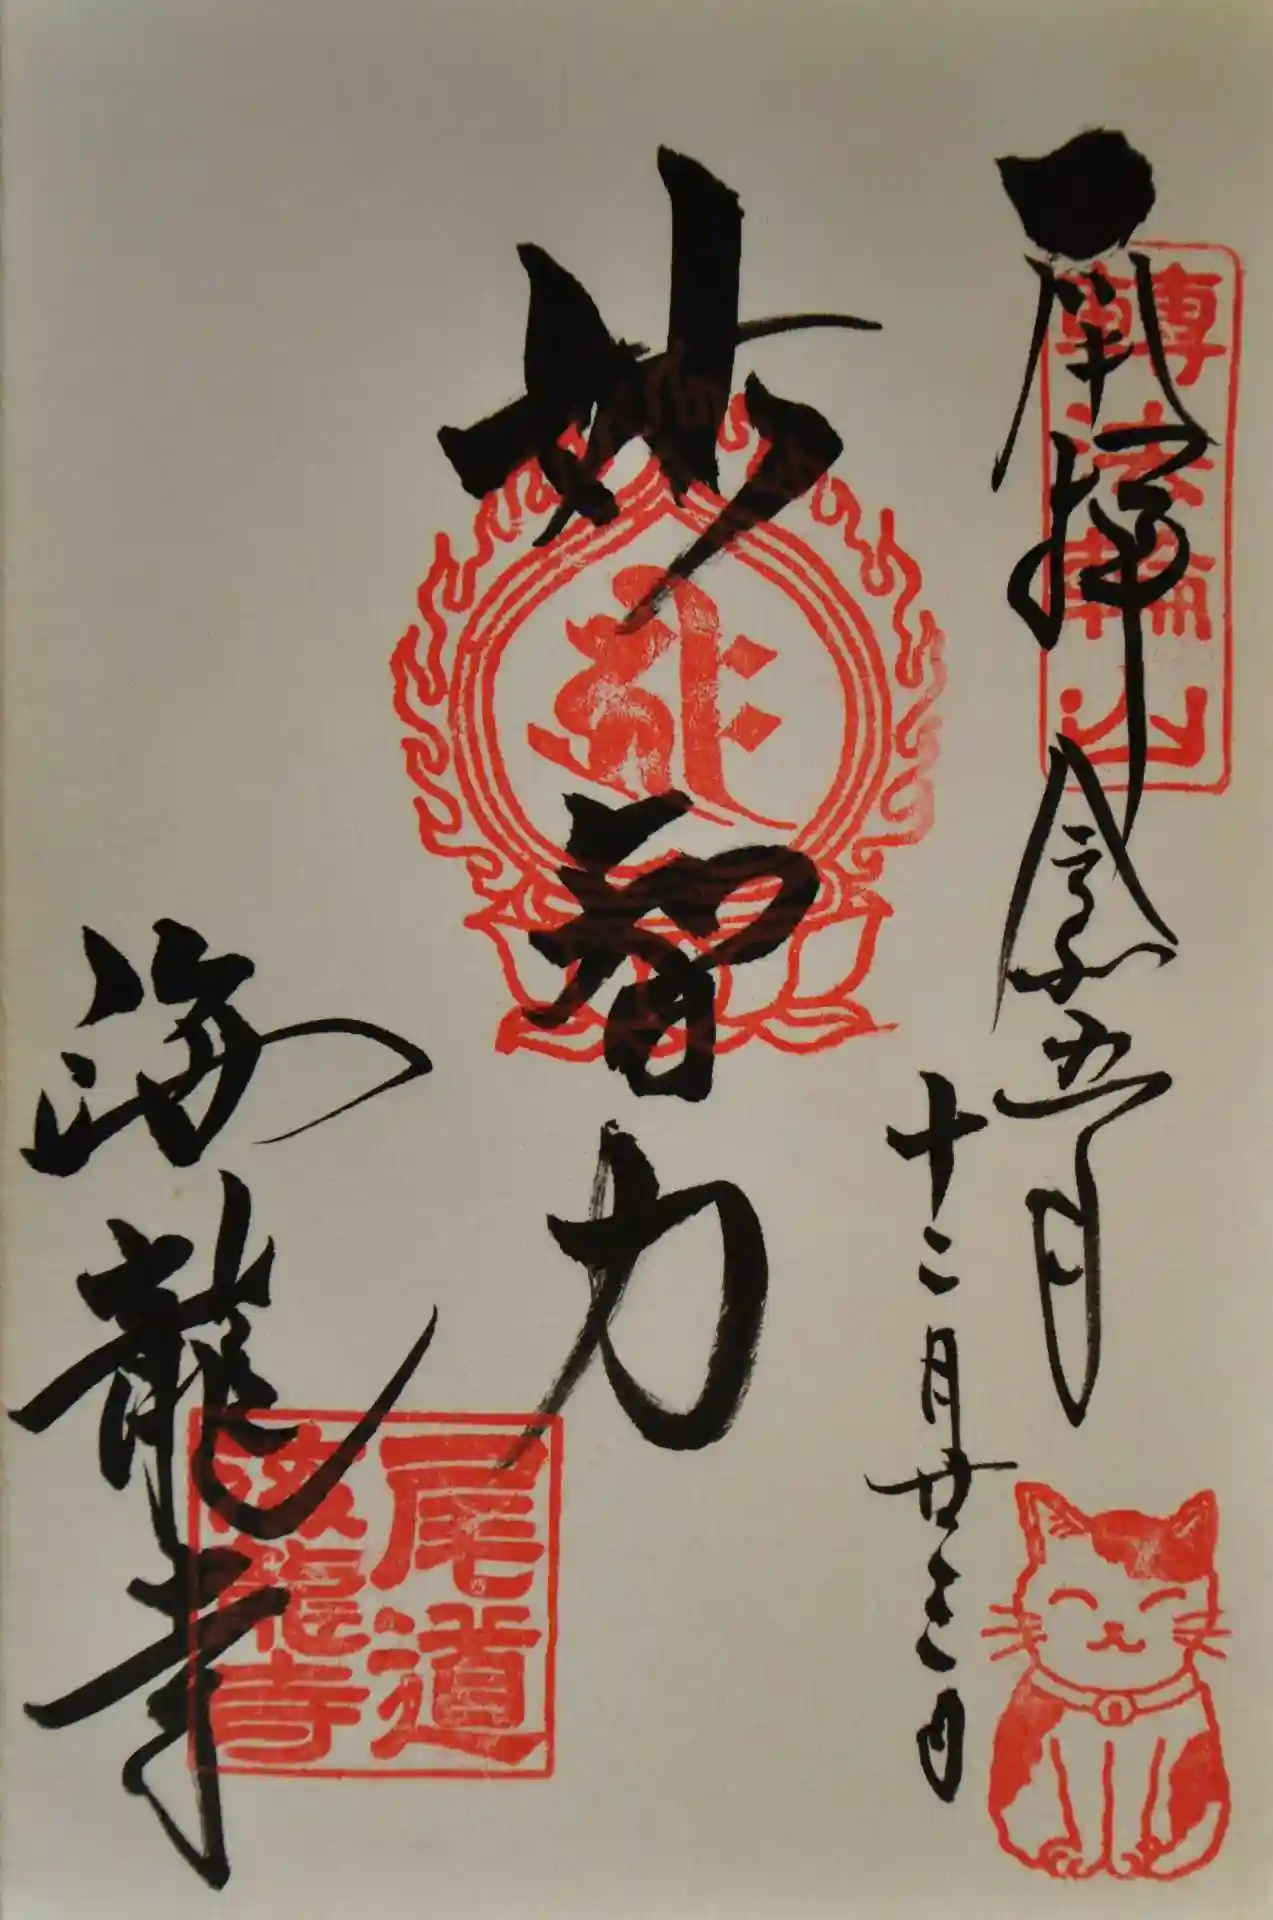 ●開拝
令和五年
十二月廿三日
轉法輪山
妙智力
海龍寺
尾道
海龍寺